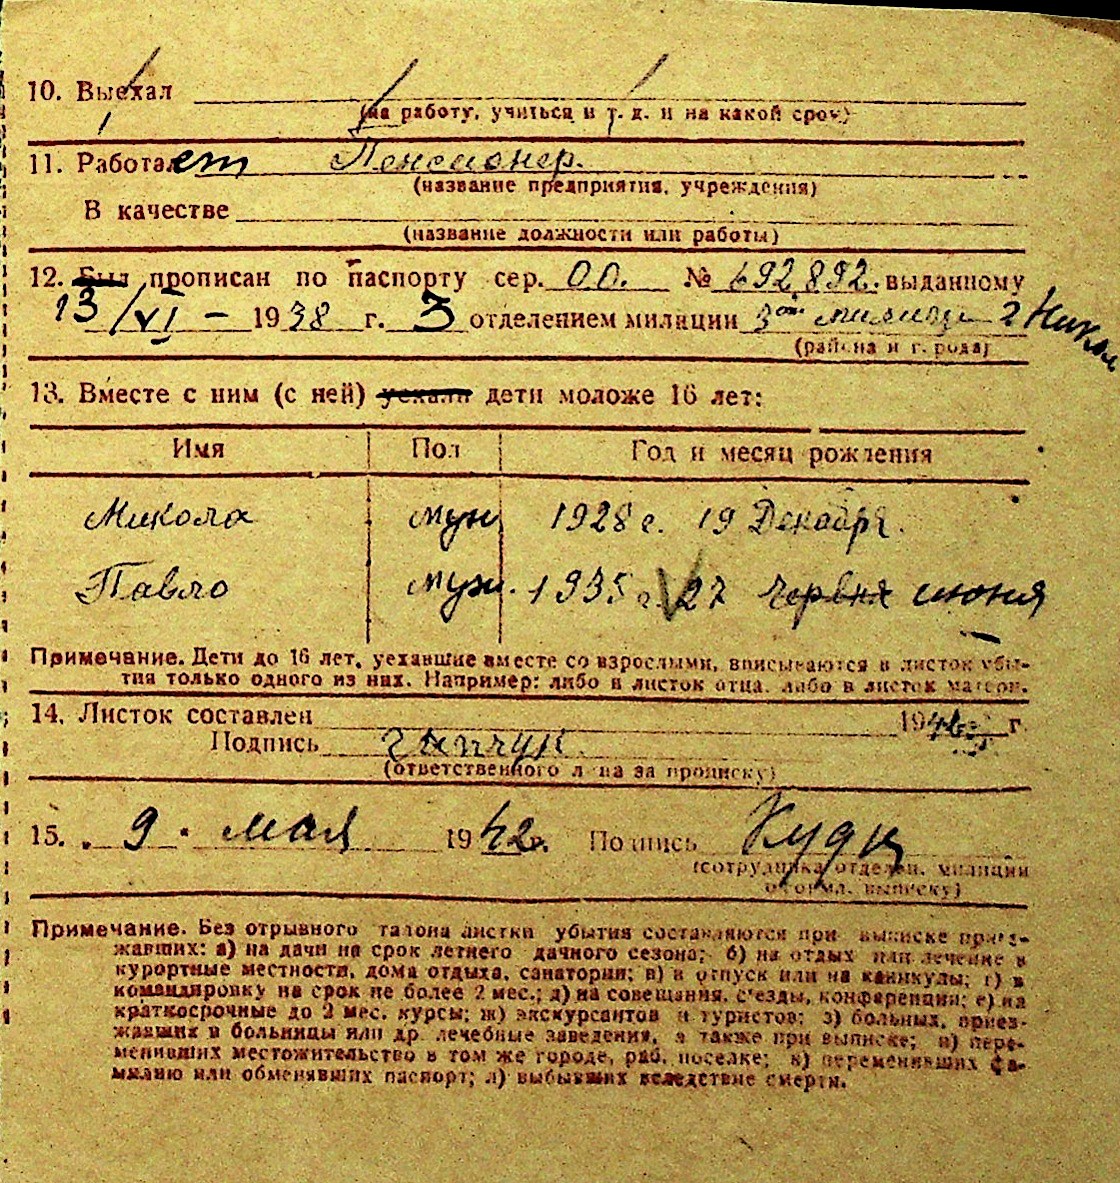 10. Выехал
(на работу, учиться и т. д. и на какой срок)
11. Работает Пенсионер.
(название предприятия, учреждения)
В качестве
(название должности или работы)
12. Был прописан по паспорту сер. 00. № 692892. выданному
13/VI – 1938 г. 3 отделением милиции 3ой милиции г
(района и города)
13. Вместе с ним (с ней) уехали дети моложе 16 лет:
Имя Пол Год и месяц рождения
Микола муж 1928 г. 19 Декабря.
Павло муж. 1935 г. 27 червня июня
Примечание. Дети до 16 лет, уехавшие вместе со взрослыми, вписываются в листок убы-
тия только одного из них. Например: либо в листок отца, либо в листок матери.
14. Листок составлен 194 г.
Подпись
(ответственного лица за прописку)
15. 9. мая 1942 г. Подпись
(сотрудника отделен. милиции
оформл. выписку)
Примечание. Без отрывного талона листки убытия составляются при выписке приез-
жавших: а) на дачи на срок летнего дачного сезона; б) на отдых или лечение в
курортные местности, дома отдыха, санатории; в) в отпуск или на каникулы; г) в
командировку на срок не более 2 мес.; д) на совещания, с'езды, конференции; е) на
краткосрочные до 2 мес. курсы; ж) экскурсантов и туристов; з) больных, приез-
жавших в больницы или др. лечебные заведения, а также при выписке; и) пере-
менивших местожительство в том же городе, раб. поселке; к) переменивших фа-
милию или обменявших паспорт; л) выбывших вследствие смерти.